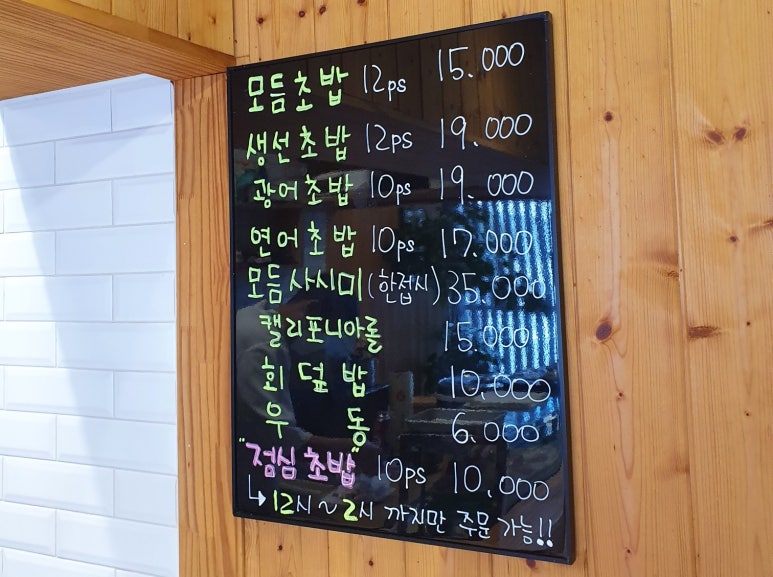 모듬초밥 12ps 15.000
생선초밥 12ps 19.000
광어초밥 10ps 19.000
연어초밥 10ps 17.000
모듬사시미(한접시) 35.000
캘리포니아롤 15.000
회덮밥 10,000
우동 6.000
"점심초밥" 10ps 10,000
↳12시~2시 까지만 주문 가능!!